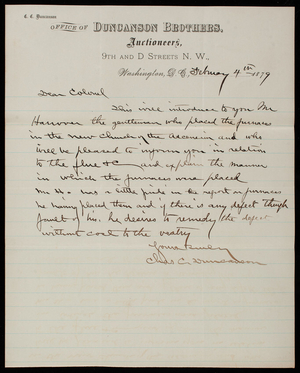 C. C. Duncanson.
OFFICE OF DUNCANSON BROTHERS,
Auctioneers,
9TH AND D STREETS N. W.,
Washington, D. C., February 4th 1879
Dear Colonel
This will introduce to you Mr
the gentleman who placed the furnaces
in the new Church of the Ascension and who
will be pleased to inform you in relation
to the flue &c and explain the manner
in which the furnaces were placed
Mr H has a little pride in as furnaces
he having placed them and if there is any defect though
fault of his he desires to remedy the defect
without cost to the vestry
Yours truly
Chas C. Duncanson